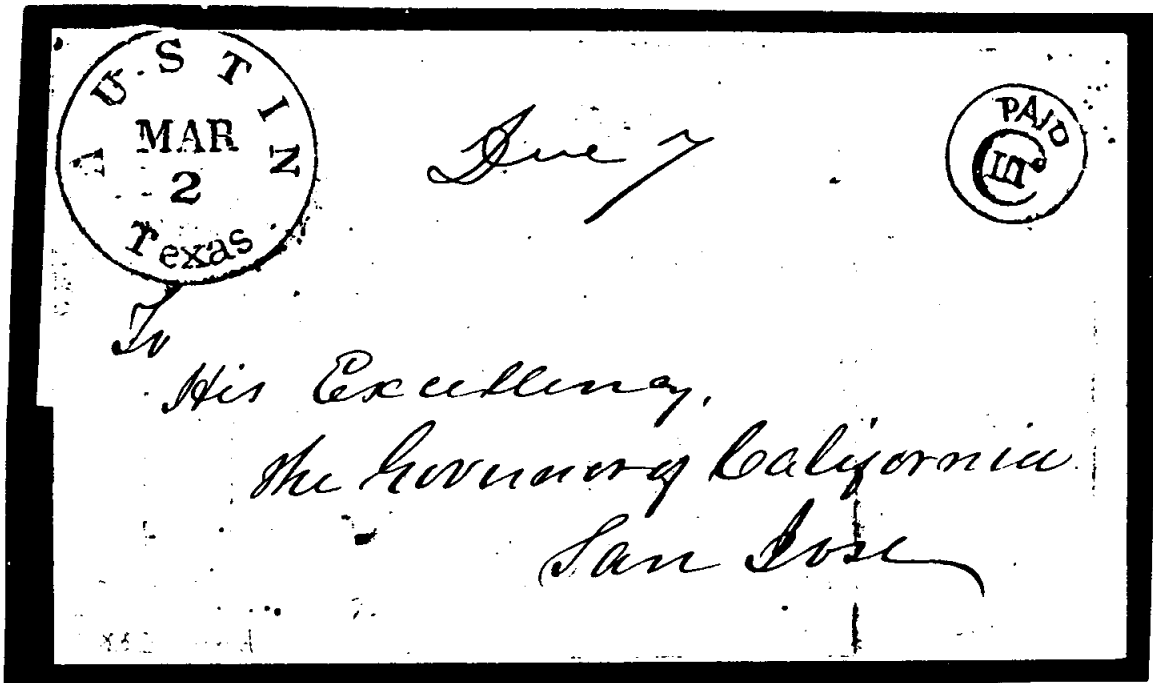 AUSTIN
MAR
2
Texas
Due 7
PAID
C III
To
His Excellency,
the Governor of California
San Jose